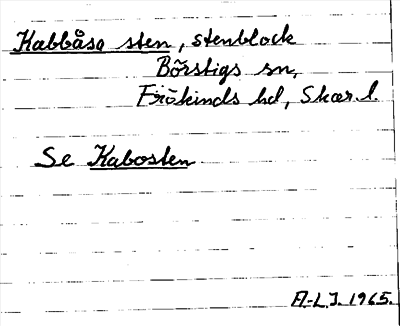 Kabbåsa sten, stenblock
Börstigs sn,
Frökinds hd, Skar. l.
Se Kabosten
A.-L. J. 1965.